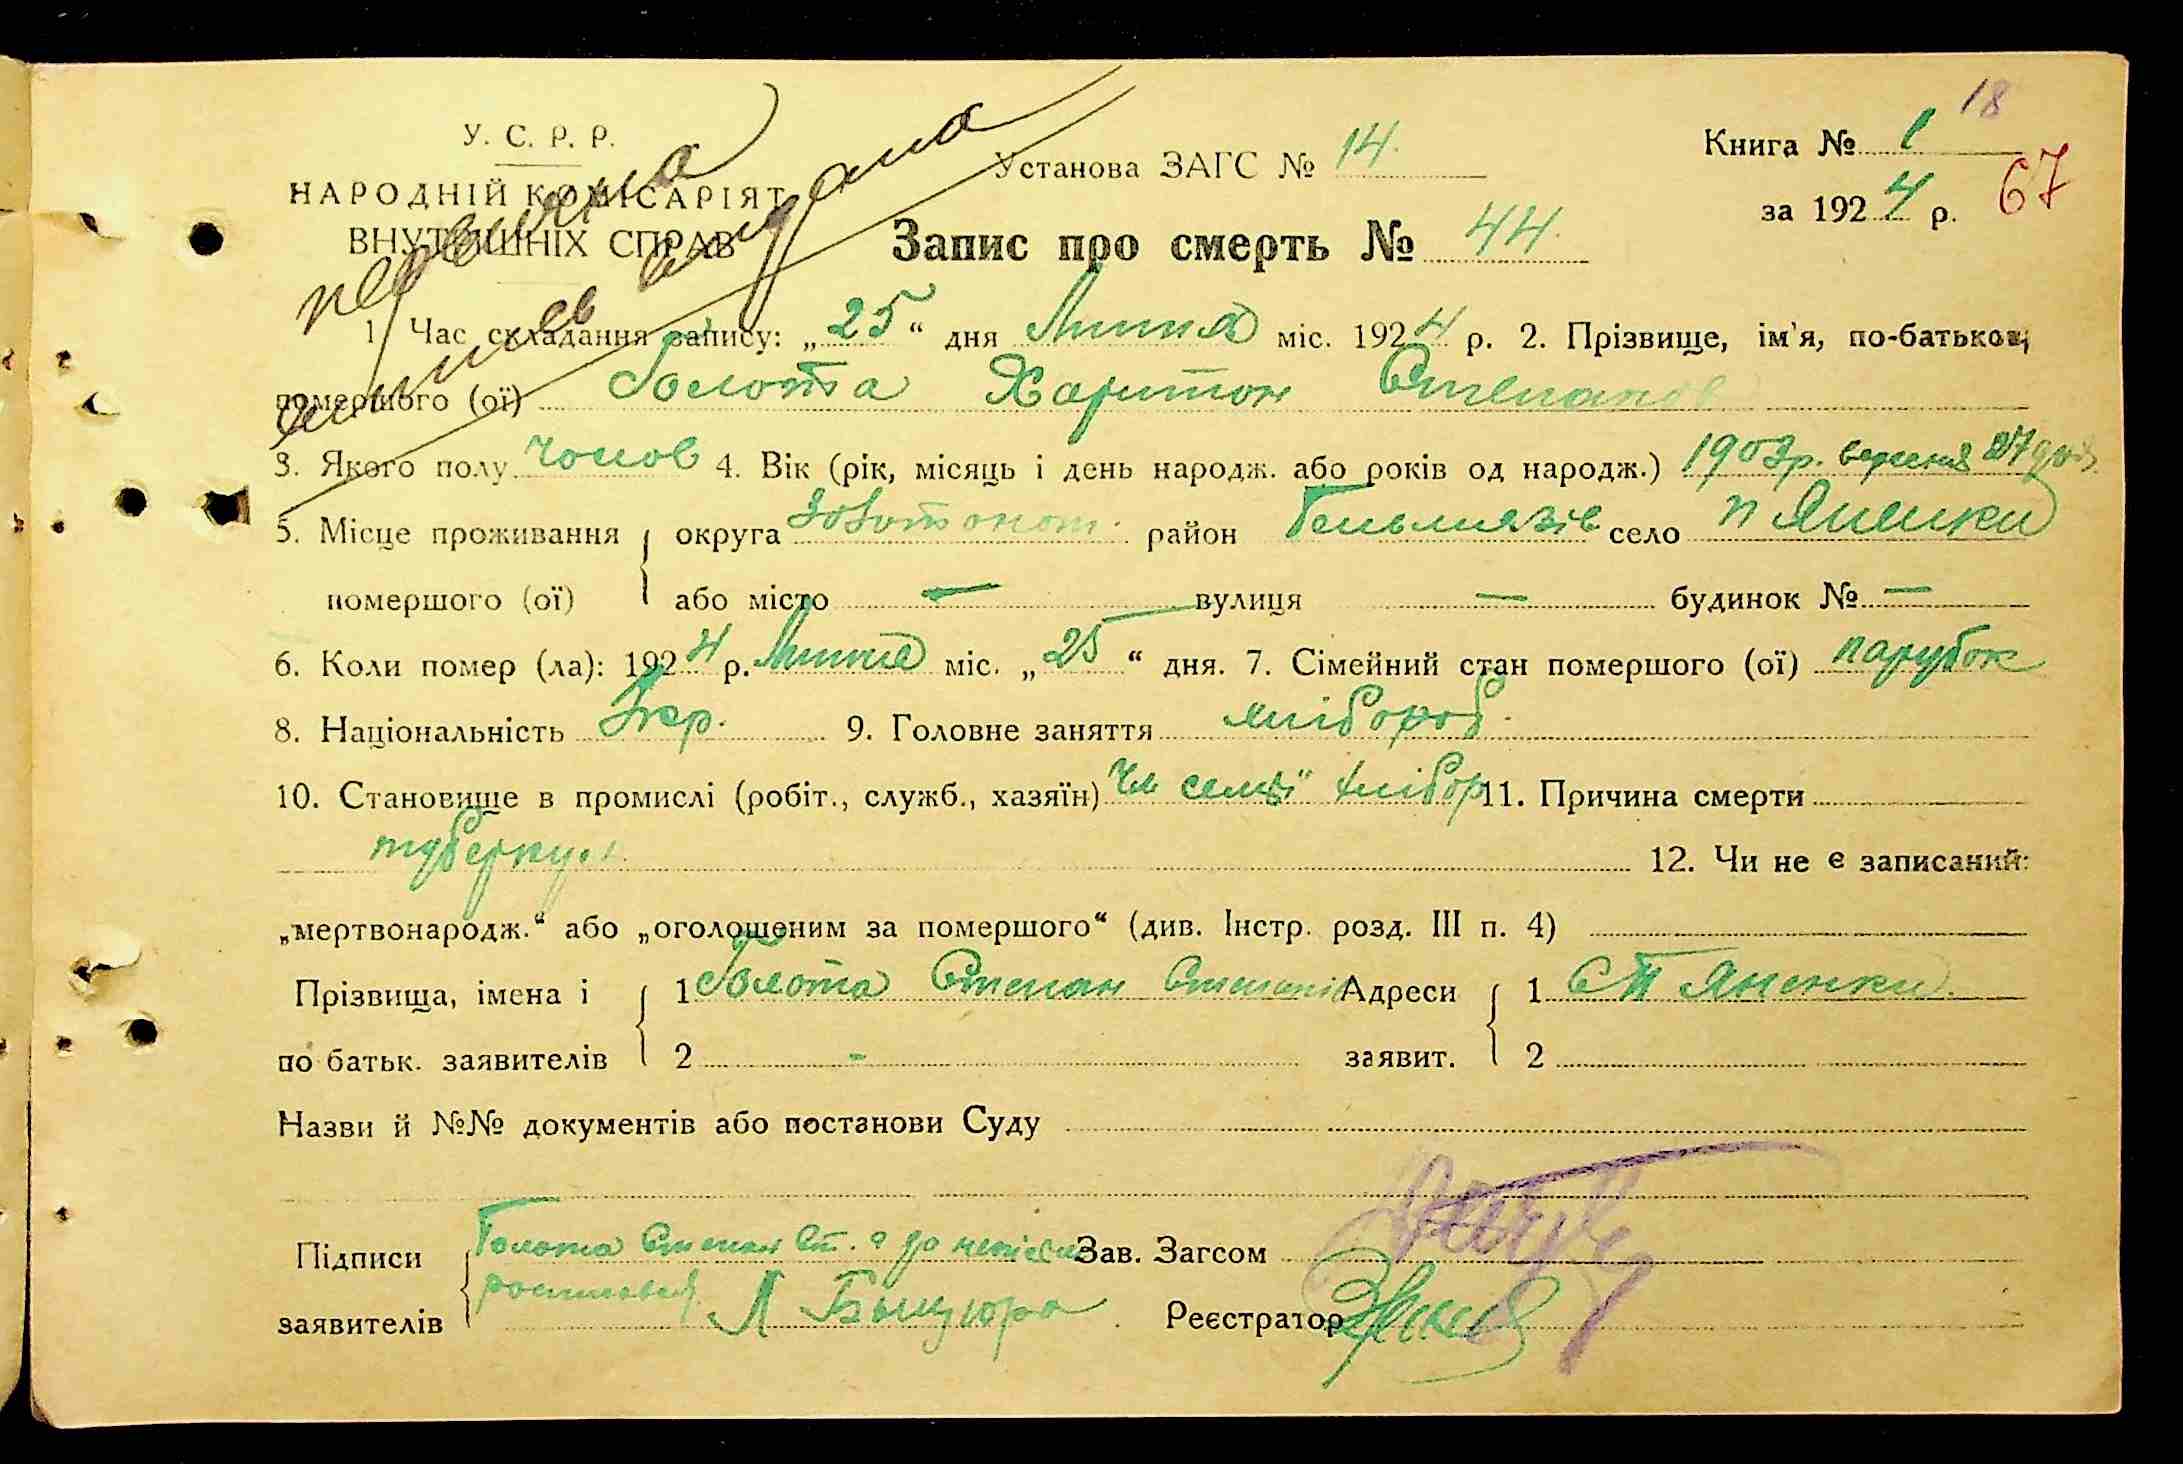 18
У. С. Р. Р.
Установа ЗАГС № 14.
Книга № 1
НАРОДНІЙ КОМІСАРІЯТ
за 1924 р. 67
ВНУТРІШНІХ СПРАВ
Запис про смерть № 44.
1. Час складання запису: „25“ дня Липня міс. 1924 р. 2. Прізвище, ім'я, по-батькові
помершого (ої) Голота Харитон Степанов
3. Якого полу чолов 4. Вік (рік, місяць і день народж. або років од народж.) 1903р. вересня 27 дня
5. Місце проживання округа Золотонош. район Гельмязів село п Яненки
помершого (ої) або місто — вулиця — будинок № —
6. Коли помер (ла): 1924 р. Липня міс. „25“ дня. 7. Сімейний стан помершого (ої) парубок
8. Національність Укр. 9. Головне заняття хлібороб.
10. Становище в промислі (робіт., служб., хазяїн) Чл семьї хлібор 11. Причина смерти
туберкул.
12. Чи не є записаний:
„мертвонародж.“ або „оголошеним за помершого“ (див. Інстр. розд. III п. 4)
Прізвища, імена і 1 Голота Степан Степанів Адреси 1 Яненки.
по батьк. заявителів 2 - заявит. 2
Назви й №№ документів або постанови Суду
Підписи Голота Степан Ст. а до Зав. Загсом
заявителів Реєстратор